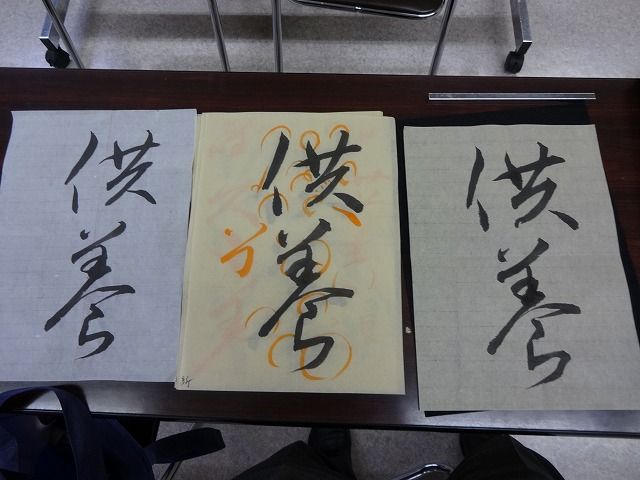 供
養
供
養
供
養